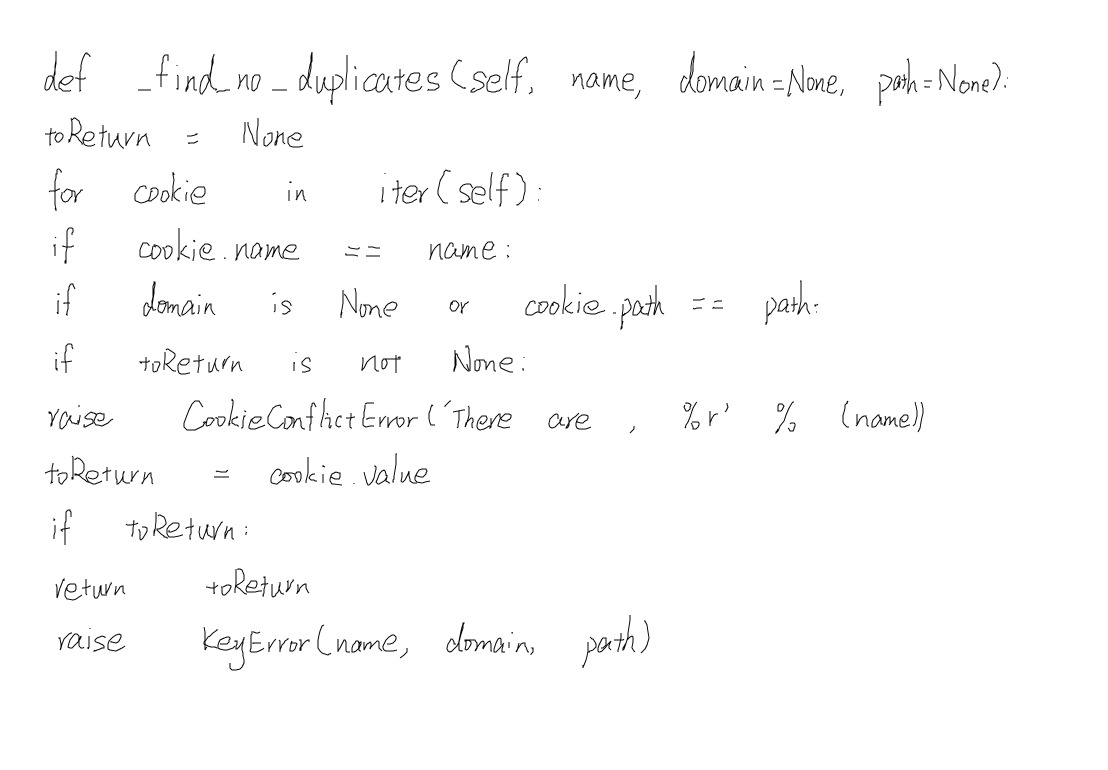 def _find_no_duplicates(self, name, domain=None, path=None):
toReturn = None
for cookie in iter(self):
if cookie.name == name:
if domain is None or cookie.path == path:
if toReturn is not None:
raise CookieConflictError('There are , %r' % (name))
toReturn = cookie.value
if toReturn:
return toReturn
raise KeyError(name, domain, path)